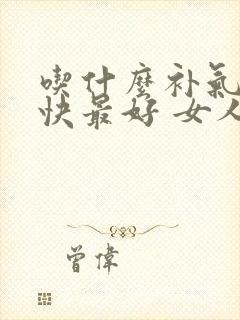 喫什麼补氣
快最好 女人
曾偉